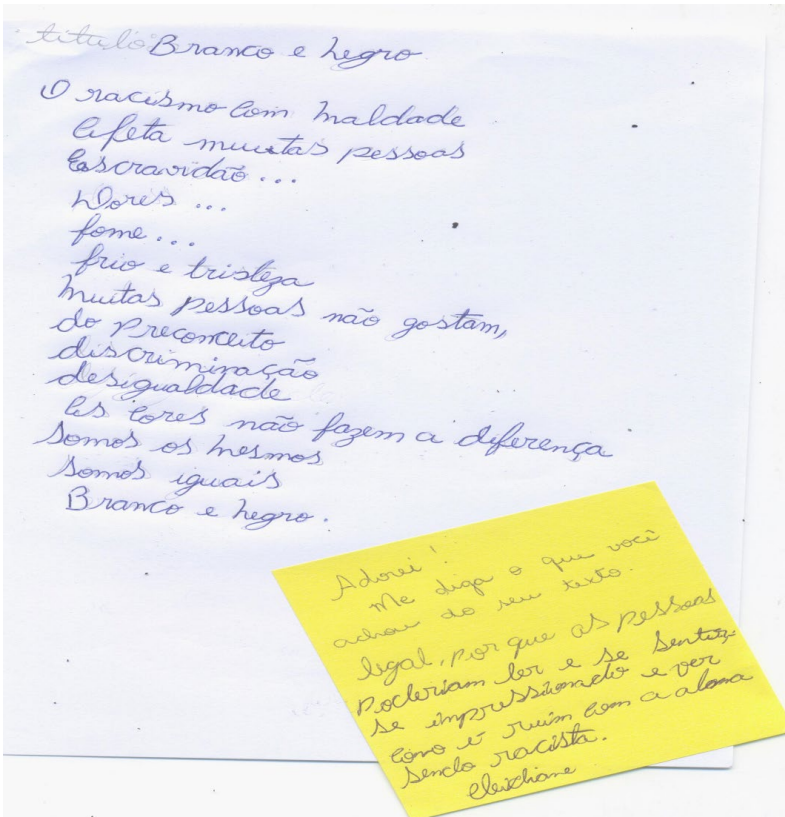 título: Branco e Negro
O racismo com maldade
Afeta muitas pessoas
Escravidão...
Dores...
fome...
frio e tristeza
Muitas pessoas não gostam,
do preconceito
discriminação
desigualdade
As cores não fazem a diferença
Somos os mesmos
Somos iguais
Branco e Negro.
Adorei!
Me diga o que você
achou do seu texto.
legal, por que as pessoas
poderiam ler e se sentir
se impressionado e ver
como é ruim com a alma
sendo racista.